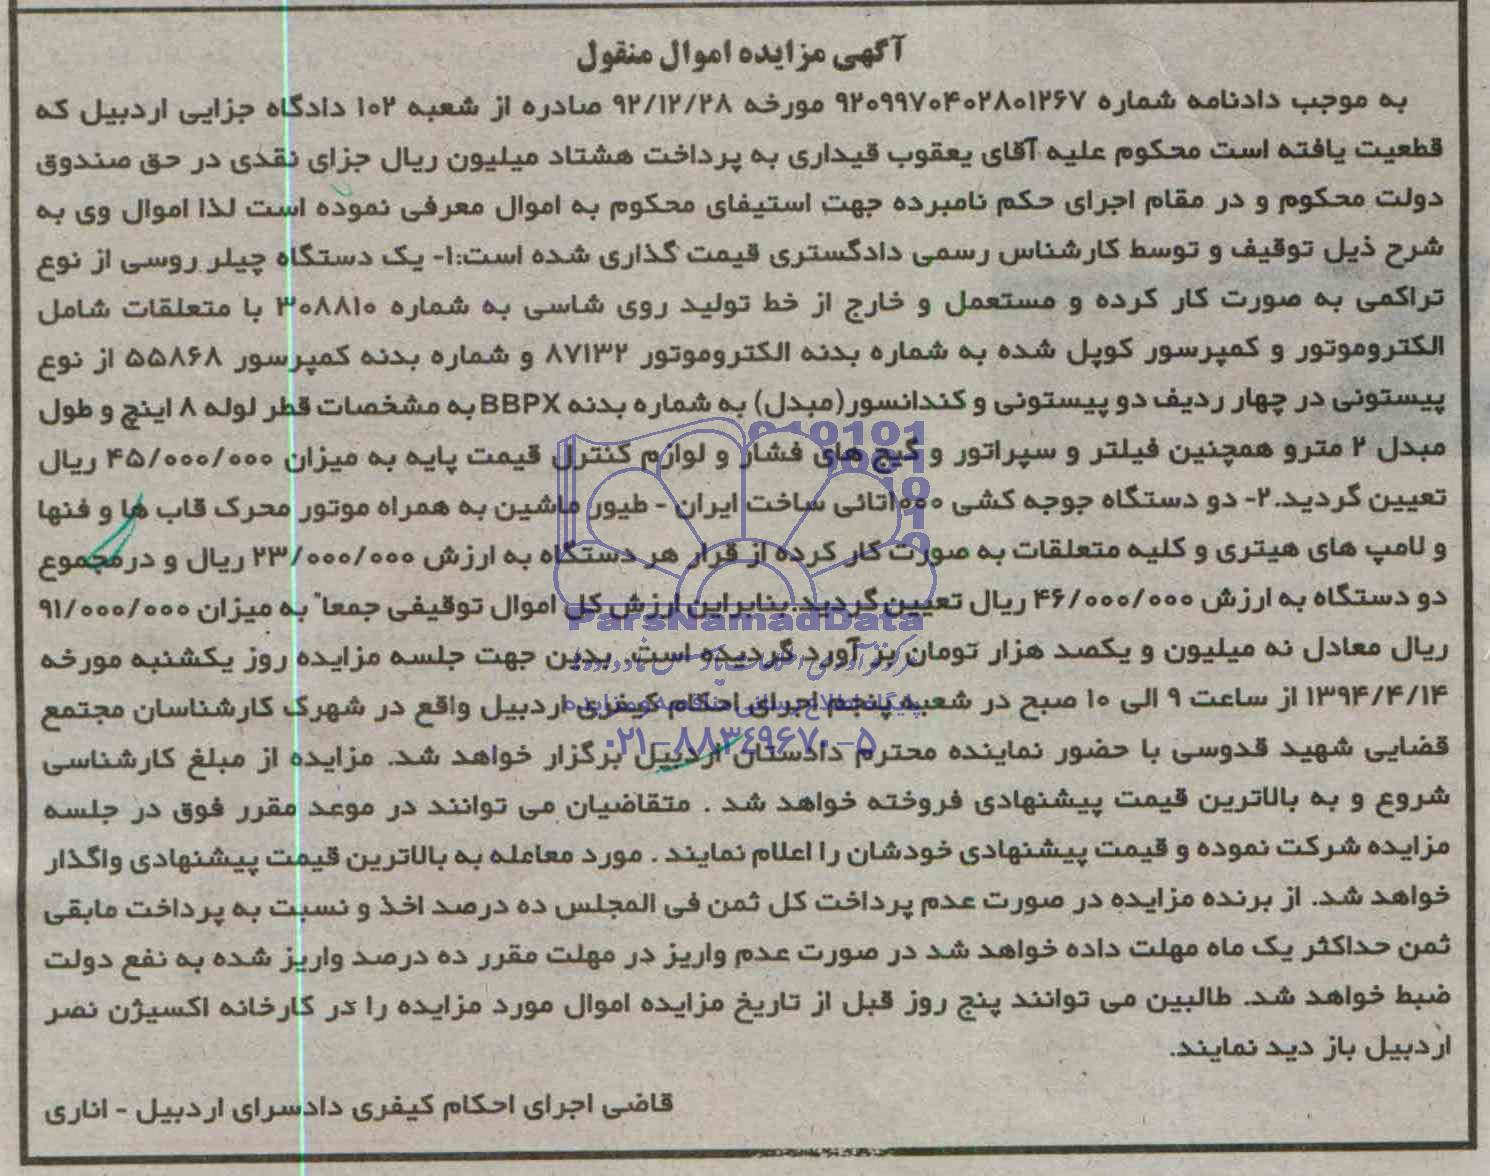 آگهی مزایده اموال منقول
به موجب دادنامه شماره ۹۲۰۹۹۷۰۴۰۲۸۰۱۲۶۷ مورخه ۹۲/۱۲/۲۸ صادره از شعبه ۱۰۲ دادگاه جزایی اردبیل که
قطعیت یافته است محکوم علیه آقای یعقوب قیداری به پرداخت هشتاد میلیون ریال جزای نقدی در حق صندوق
دولت محکوم و در مقام اجرای حکم نامبرده جهت استیفای محکوم به اموال معرفی نموده است لذا اموال وی به
شرح ذیل توقیف و توسط کارشناس رسمی دادگستری قیمت گذاری شده است:۱- یک دستگاه چیلر روسی از نوع
تراکمی به صورت کار کرده و مستعمل و خارج از خط تولید روی شاسی به شماره ۳۰۸۸۱۰ با متعلقات شامل
الکتروموتور و کمپرسور کوپل شده به شماره بدنه الکتروموتور ۸۷۱۳۲ و شماره بدنه کمپرسور ۵۵۸۶۸ از نوع
پیستونی در چهار ردیف دو پیستونی و کندانسور(مبدل) به شماره بدنه BBPX به مشخصات قطر لوله ۸ اینچ و طول
مبدل ۲ مترو همچنین فیلتر و سپراتور و گیج های فشار و لوازم کنترل قیمت پایه به میزان ۴۵/۰۰۰/۰۰۰ ریال
تعیین گردید.۲- دو دستگاه جوجه کشی ۱۰۰۰تائی ساخت ایران - طیور ماشین به همراه موتور محرک قاب ها و فنها
و لامپ های هیتری و کلیه متعلقات به صورت کار کرده از قرار هر دستگاه به ارزش ۲۳/۰۰۰/۰۰۰ ریال و درمجموع
دو دستگاه به ارزش ۴۶/۰۰۰/۰۰۰ ریال تعیین گردید.بنابراین ارزش کل اموال توقیفی جمعا" به میزان ۹۱/۰۰۰/۰۰۰
ParsNamadData
ریال معادل نه میلیون و یکصد هزار تومان بر آورد گردیده است. بدین جهت جلسه مزایده روز یکشنبه مورخه
۱۳۹۴/۴/۱۴ از ساعت ۹ الی ۱۰ صبح در شعبه پنجم اجرای احکام کیفری اردبیل واقع در شهرک کارشناسان مجتمع
۰۲۱-۸۸۳۴۹۶۷۰-۵
قضایی شهید قدوسی با حضور نماینده محترم دادستان اردبیل برگزار خواهد شد. مزایده از مبلغ کارشناسی
شروع و به بالاترین قیمت پیشنهادی فروخته خواهد شد . متقاضیان می توانند در موعد مقرر فوق در جلسه
مزایده شرکت نموده و قیمت پیشنهادی خودشان را اعلام نمایند . مورد معامله به بالاترین قیمت پیشنهادی واگذار
خواهد شد. از برنده مزایده در صورت عدم پرداخت کل ثمن فی المجلس ده درصد اخذ و نسبت به پرداخت مابقی
ثمن حداکثر یک ماه مهلت داده خواهد شد در صورت عدم واریز در مهلت مقرر ده درصد واریز شده به نفع دولت
ضبط خواهد شد. طالبین می توانند پنج روز قبل از تاریخ مزایده اموال مورد مزایده را در کارخانه اکسیژن نصر
اردبیل باز دید نمایند.
قاضی اجرای احکام کیفری دادسرای اردبیل - اناری